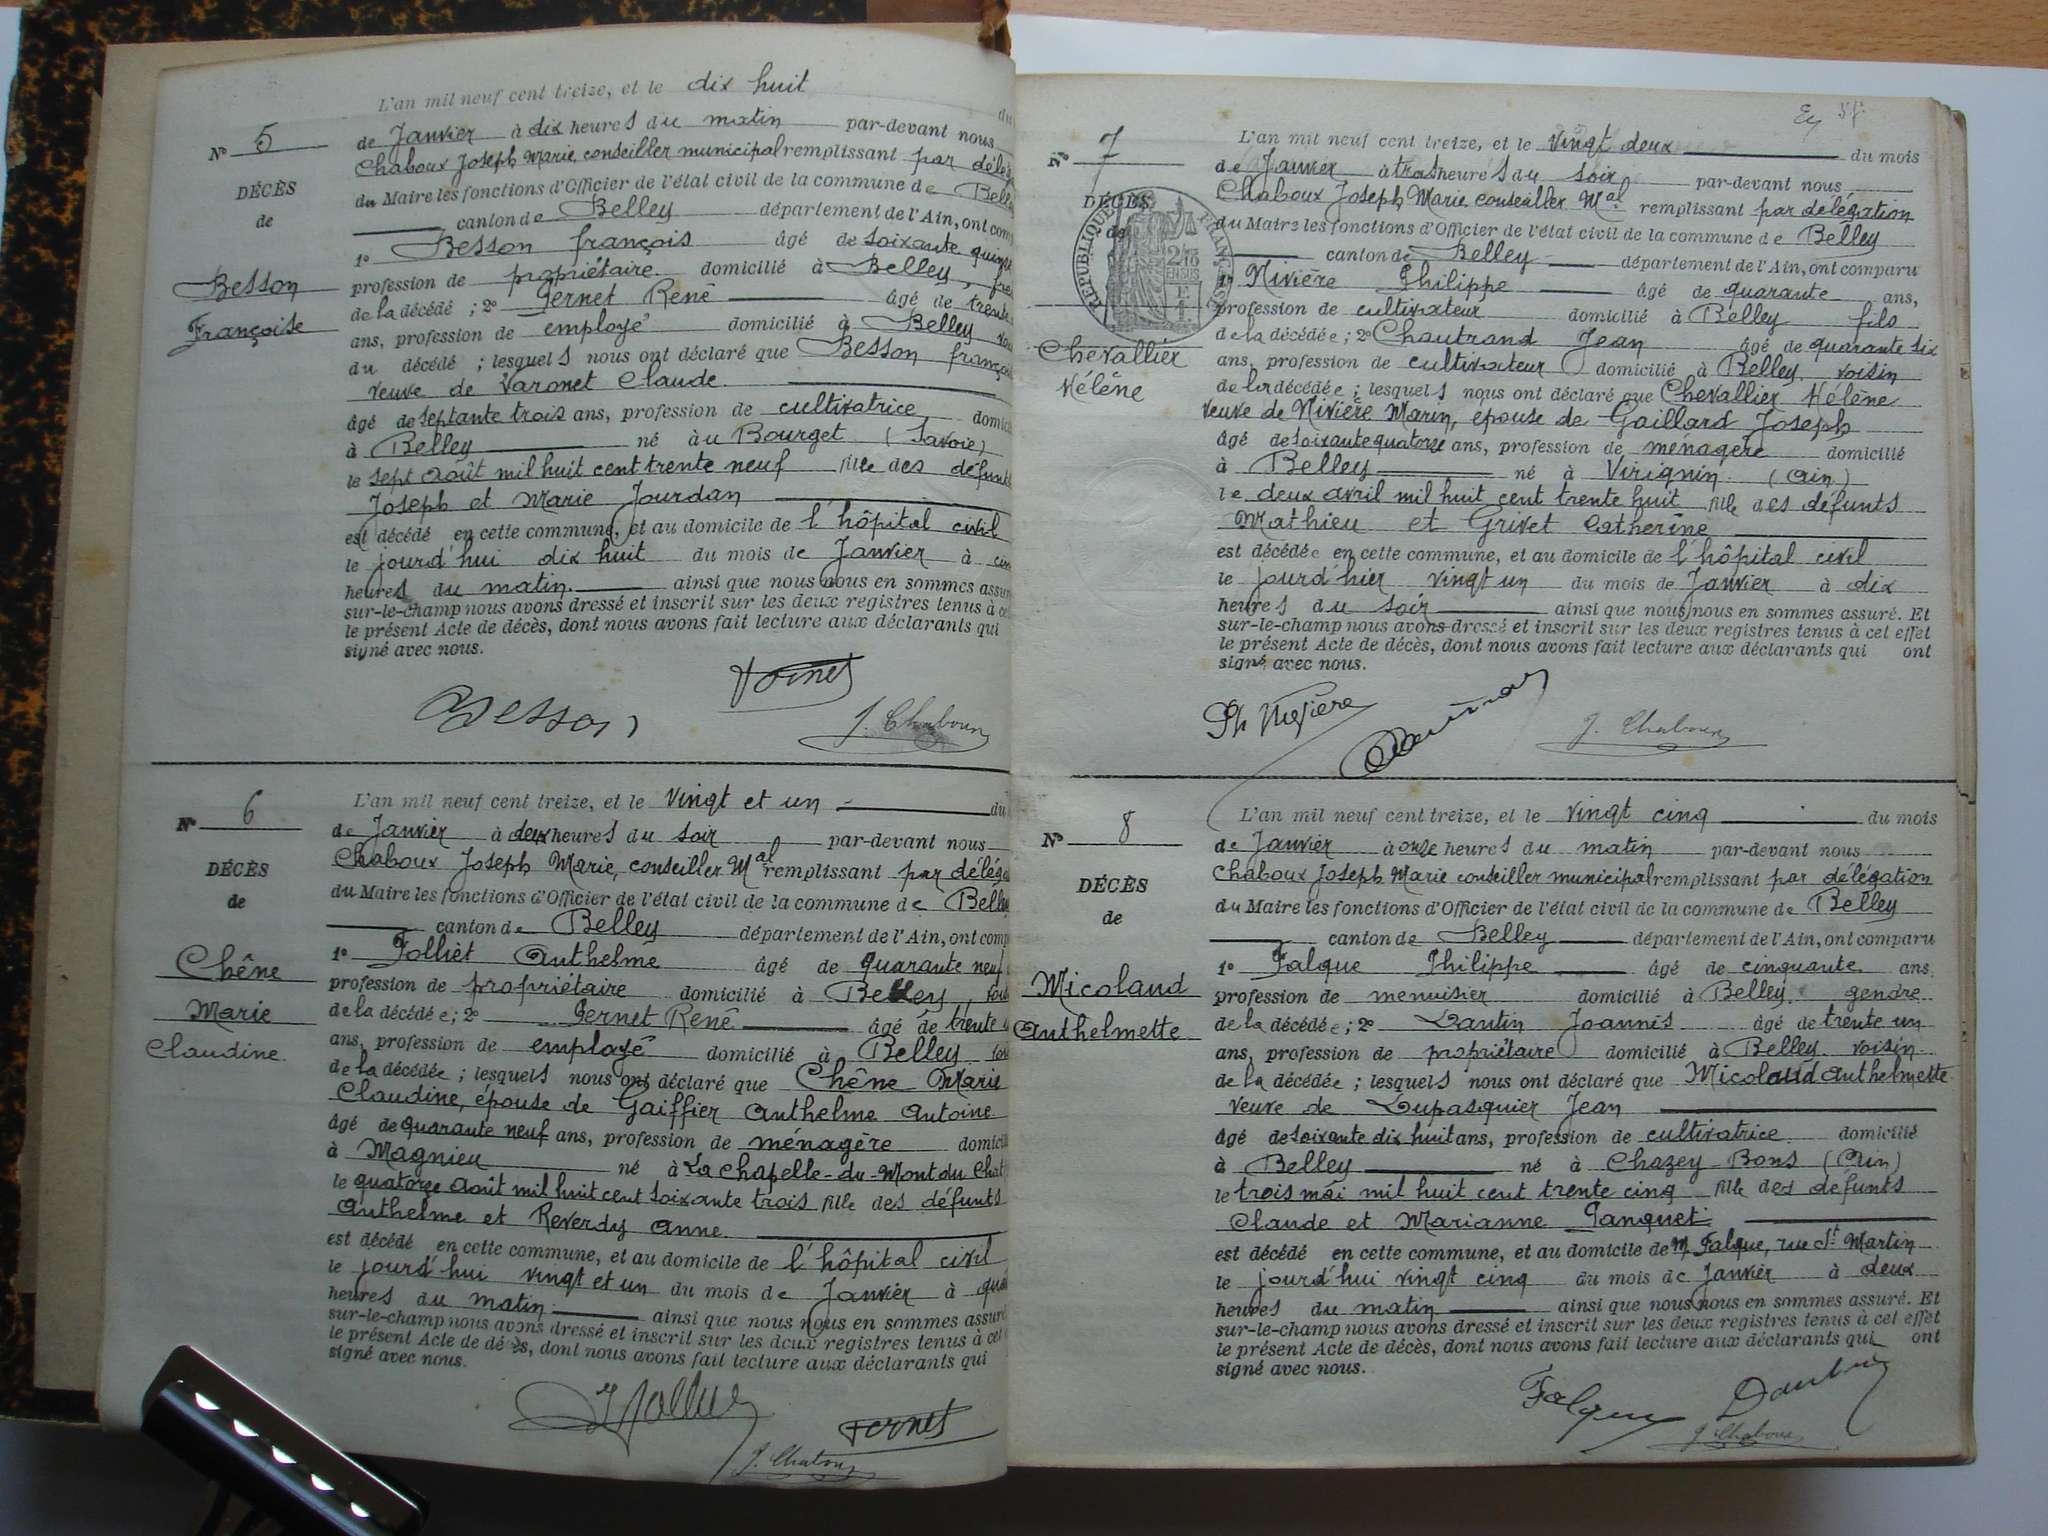 L'an mil neuf cent treize, et le dix huit
Nº 5
de Janvier à dix heures du matin par-devant nous
Chaboux Joseph Marie, conseiller municipal remplissant par délég
DÉCÈS
du Maire les fonctions d'Officier de l'état civil de la commune de Belle
de
canton de Belley département de l'Ain, ont com
1º Besson françois âgé de soixante quinze
Besson
Françoise
profession de propriétaire domicilié à Belley,
de la décédé ; 2º Pernet René âgé de trente
ans, profession de employé domicilié à Belley
du décédé ; lesquels nous ont déclaré que Besson franço
veuve de Varonet Claude
âgé de septante trois ans, profession de cultivatrice domici
à Belley né au Bourget (Savoie)
le sept août mil huit cent trente neuf fille des défunts
Joseph et Marie Jourdan
est décédé en cette commune, et au domicile de l'hôpital civil
le jourd'hui dix huit du mois de Janvier à
heures du matin ainsi que nous nous en sommes assur
sur-le-champ nous avons dressé et inscrit sur les deux registres tenus à ce
le présent Acte de décès, dont nous avons fait lecture aux déclarants qui
signé avec nous.
Besson
J. Chaboux
L'an mil neuf cent treize, et le vingt et un du
Nº 6
de Janvier à deux heures du soir par-devant nous
Chaboux Joseph Marie, conseiller Mal remplissant par délég
DÉCÈS
du Maire les fonctions d'Officier de l'état civil de la commune de Belley
de
canton de Belley département de l'Ain, ont comp
1º Folliet Anthelme âgé de quarante neuf
Chêne
Marie
Claudine
profession de propriétaire domicilié à Belley,
de la décédée ; 2º Pernet René âgé de trente
ans, profession de employé domicilié à Belley
de la décédée ; lesquels nous ont déclaré que Chêne Marie
Claudine, épouse de Gaiffier Anthelme Antoine
âgé de quarante neuf ans, profession de ménagère domicili
à Magnieu né à La Chapelle-du-Mont du Chat
le quatorze août mil huit cent soixante trois fille des défunts
Anthelme et Reverdy Anne
est décédé en cette commune, et au domicile de l'hôpital civil
le jourd'hui vingt et un du mois de Janvier à
heures du matin ainsi que nous nous en sommes assuré
sur-le-champ nous avons dressé et inscrit sur les deux registres tenus à cet
le présent Acte de décès, dont nous avons fait lecture aux déclarants qui
signé avec nous.
Pernet
J. Chaboux
L'an mil neuf cent treize, et le vingt deux du mois
Nº 7
de Janvier à trois heures du soir par-devant nous
Chaboux Joseph Marie conseiller Mal remplissant par délégation
DÉCÈS
de
RÉPUBLIQUE FRANÇAISE
du Maire les fonctions d'Officier de l'état civil de la commune de Belley
canton de Belley département de l'Ain, ont comparu
1º Nivière Philippe âgé de quarante ans,
profession de cultivateur domicilié à Belley fils
Chevallier
Hélène
de la décédée ; 2º Chautrand Jean âgé de quarante six
ans, profession de cultivateur domicilié à Belley voisin
de la décédée ; lesquels nous ont déclaré que Chevallier Hélène
veuve de Nivière Marin, épouse de Gaillard Joseph
âgé de soixante quatorze ans, profession de ménagère domicilié
à Belley né à Virignin (Ain)
le deux avril mil huit cent trente huit fille des défunts
Mathieu et Grivet Catherine
est décédée en cette commune, et au domicile de l'hôpital civil
le jourd'hier vingt un du mois de Janvier à dix
heures du soir ainsi que nous nous en sommes assuré. Et
sur-le-champ nous avons dressé et inscrit sur les deux registres tenus à cet effet
le présent Acte de décès, dont nous avons fait lecture aux déclarants qui ont
signé avec nous.
Ph Nivière
J. Chaboux
L'an mil neuf cent treize, et le vingt cinq du mois
Nº 8
de Janvier à onze heures du matin par-devant nous
Chaboux Joseph Marie conseiller municipal remplissant par délégation
DÉCÈS
du Maire les fonctions d'Officier de l'état civil de la commune de Belley
de
canton de Belley département de l'Ain, ont comparu
1º Falque Philippe âgé de cinquante ans
Micoland
Anthelmette
profession de menuisier domicilié à Belley gendre
de la décédée ; 2º Dantin Joannès âgé de trente un
ans, profession de propriétaire domicilié à Belley voisin
de la décédée ; lesquels nous ont déclaré que Micoland Anthelmette
veuve de Dupasquier Jean
âgé de soixante dix huit ans, profession de cultivatrice domicilié
à Belley né à Chazey-Bons (Ain)
le trois mai mil huit cent trente cinq fille des défunts
Claude et Marianne Panquet
est décédé en cette commune, et au domicile de M. Falque, rue St Martin
le jourd'hui vingt cinq du mois de Janvier à deux
heures du matin ainsi que nous nous en sommes assuré. Et
sur-le-champ nous avons dressé et inscrit sur les deux registres tenus à cet effet
le présent Acte de décès, dont nous avons fait lecture aux déclarants qui ont
signé avec nous.
Falque
Dantin
J. Chaboux